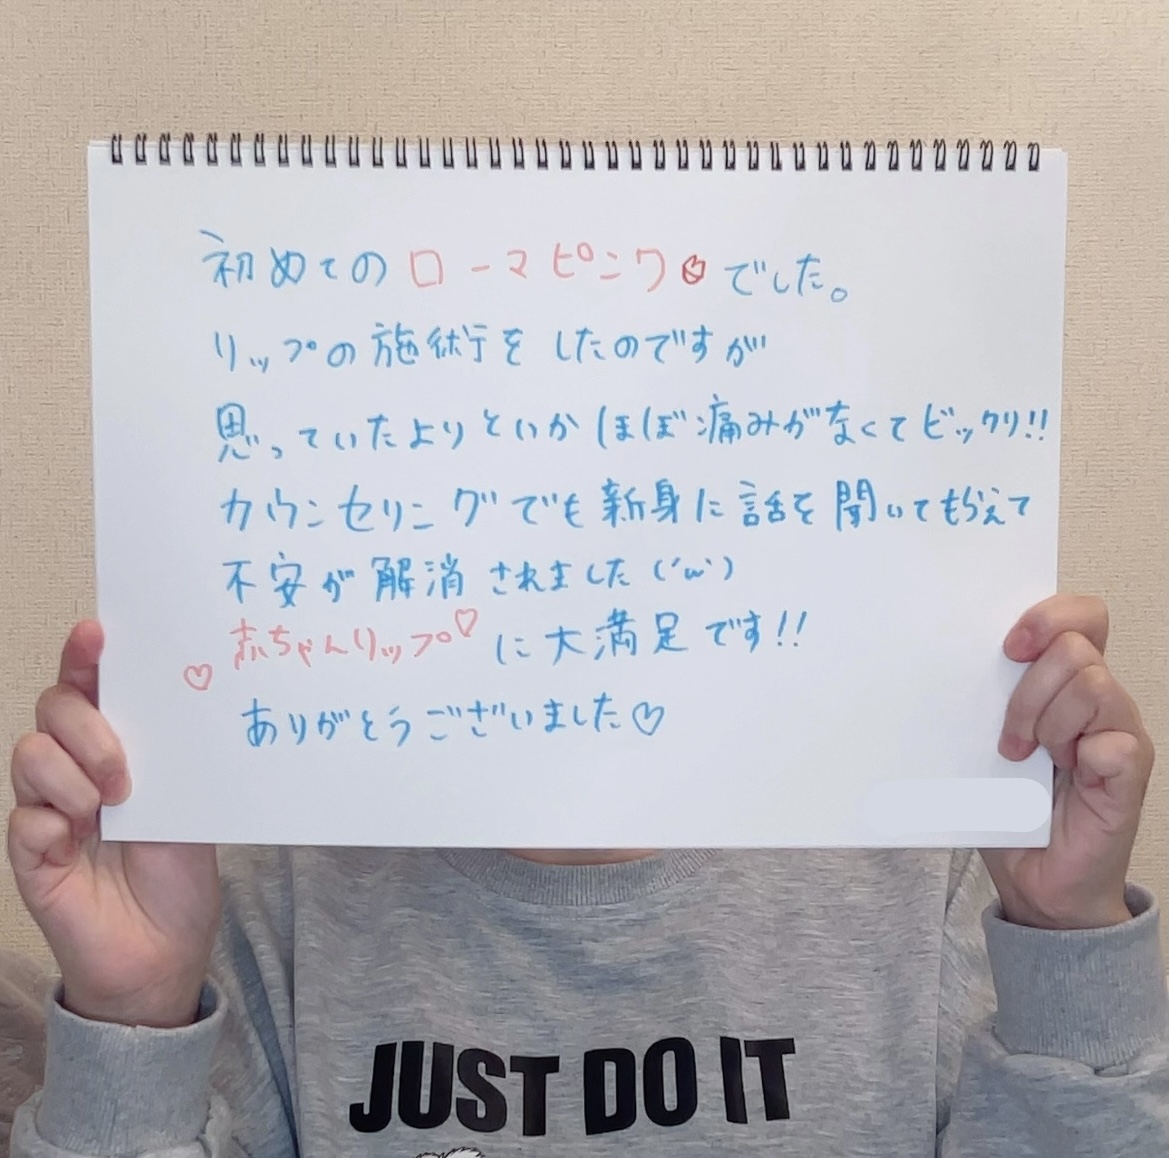 初めてのローマピンク でした。
リップの施術をしたのですが
思っていたよりというかほぼ痛みがなくてビックリ!!
カウンセリングでも新身に話を聞いてもらえて
不安が解消されました(´ω`)
赤ちゃんリップ♡に大満足です!!
♡
ありがとうございました♡
JUST DO IT